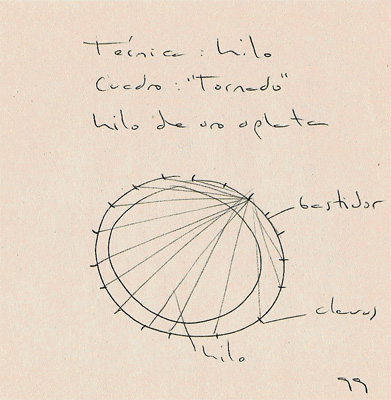 Técnica: hilo
Cuadro: "Tornado"
hilo de oro o plata
bastidor
clavos
hilo
99